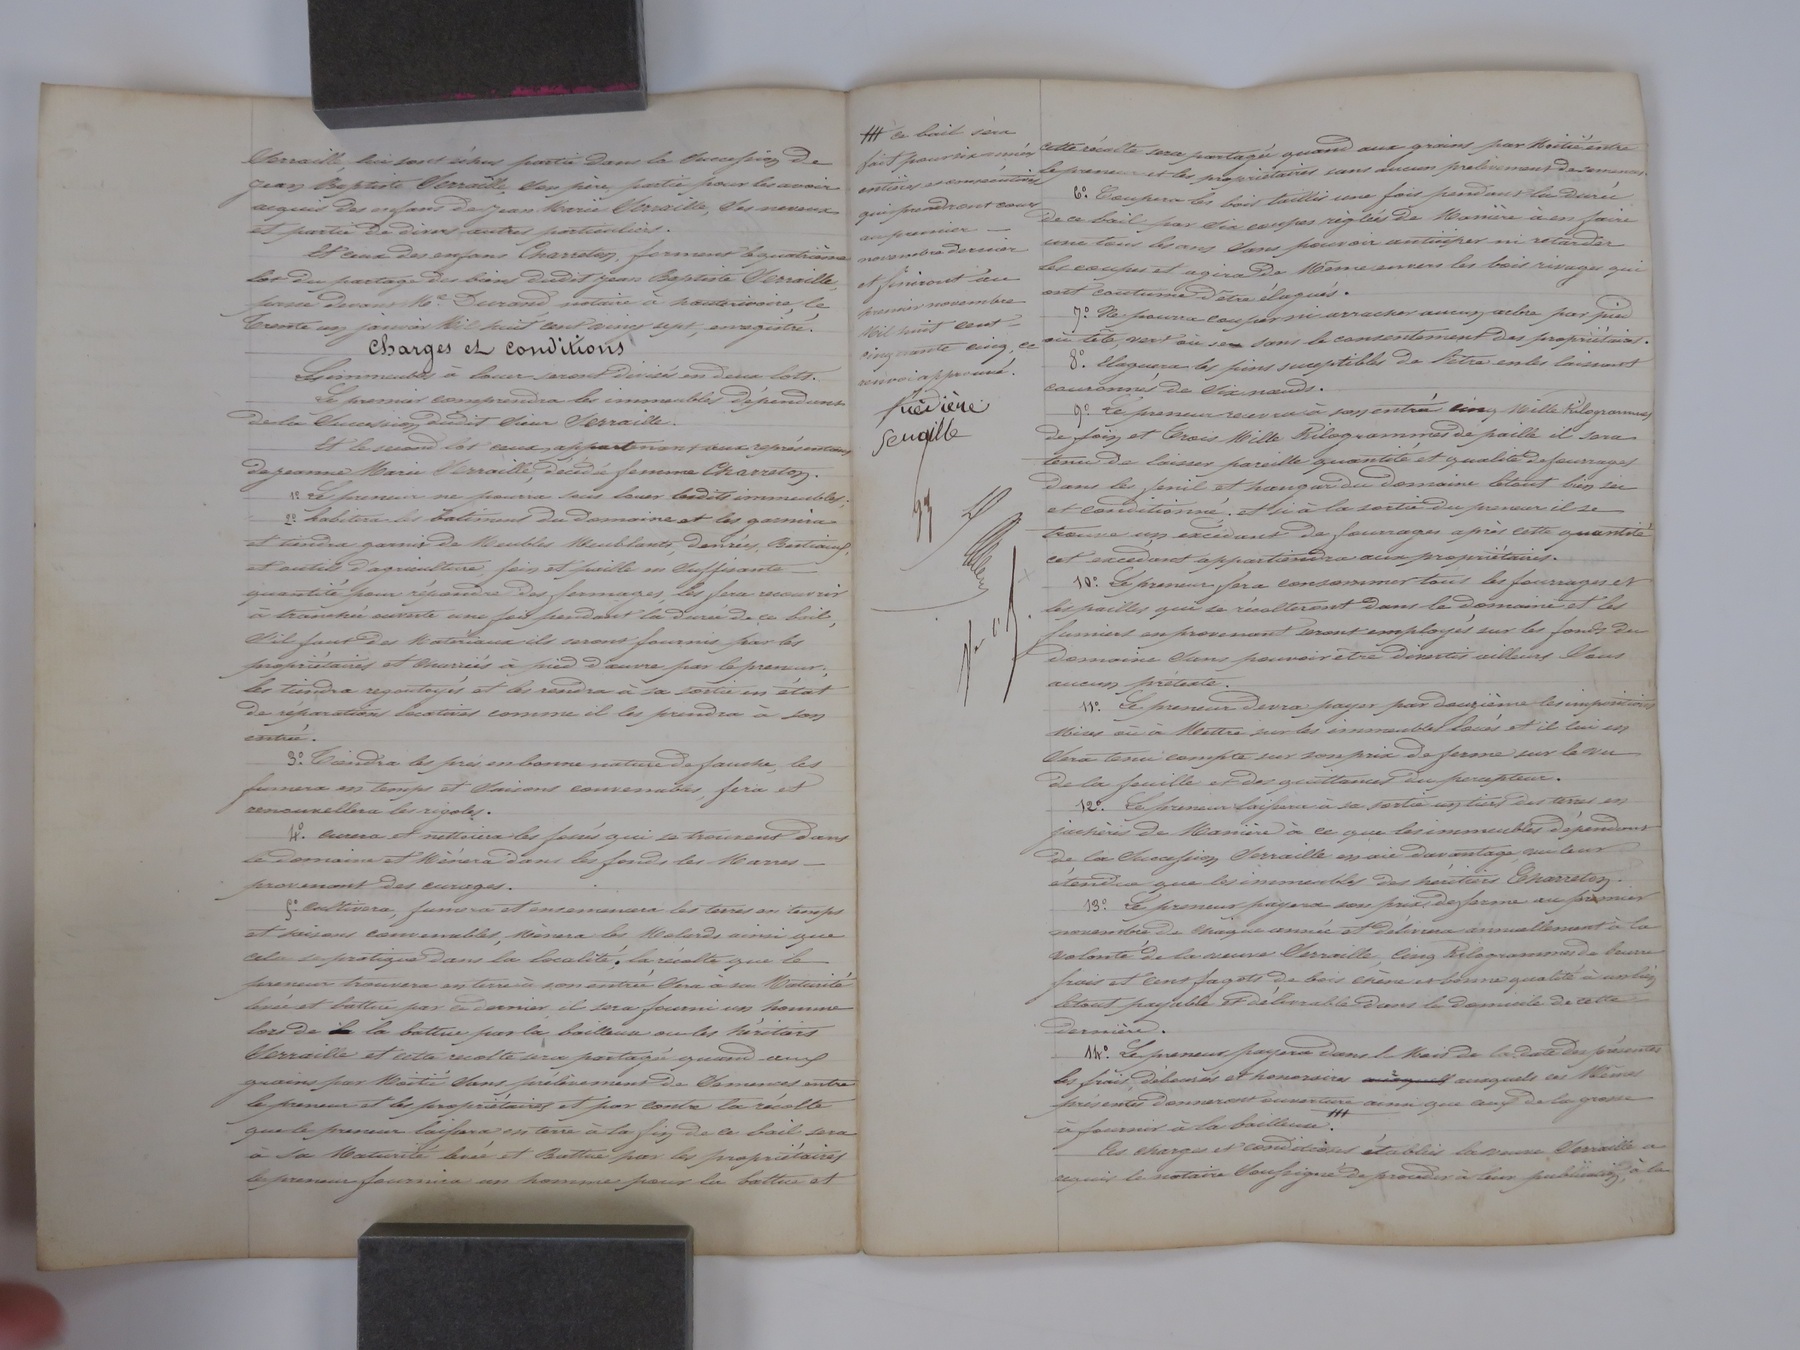 Verraille lui sont échus partie dans la succession de
Jean Baptiste Verraille, son père, partie pour les avoir
acquis des enfans de Jean Marie Verraille, ses neveux
et partie de divers autres particuliers.
Et ceux des enfans Charreton, forment le quatrième
lot du partage des biens dudit Jean Baptiste Verraille,
passé devant Me Durand notaire à hauterivoire, le
trente un janvier Mil huit cent vingt sept, enregistré.
Charges et conditions
Les immeubles à louer seront divisés en deux lots.
Le premier comprendra les immeubles dépendant
de la succession dudit sieur Verraille.
Et le second lot ceux appartenant aux représentans
de jeanne Marie Verraille, décédée femme Charreton.
1o Le preneur ne pourra sous louer lesdits immeubles.
2o habitera les batimens du Domaine et les garnira
et tiendra garnis de Meubles Meublants, denrées, Bestiaux,
et outils d'agriculture, foin et paille en suffisante
quantité pour répondre des fermages, les fera recouvrir
à tranchée ouverte une fois pendant la durée de ce bail,
s'il faut des Matériaux ils seront fournis par les
propriétaires et charriés à pied d'œuvre par le preneur,
les tiendra regoutoyés et les rendra à sa sortie en état
de réparations locatives comme il les prendra à son
entrée.
3o Tiendra les prés en bonne nature de fauche, les
fumera en temps et saisons convenables, fera et
renouvellera les rigoles.
4o curera et nettoiera les fossés qui se trouvent dans
le domaine et Mènera dans les fonds les Marres
provenant des curages.
5o cultivera, fumera et ensemencera les terres en temps
et saisons convenables, mènera les ainsi que
cela se pratique dans la localité, la récolte que le
preneur trouvera en terre à son entrée sera à sa Maturité
levée et battue par ce dernier, il sera fourni un homme
lors de la battue par la bailleuse ou les héritiers
Verraille et cette récolte sera partagée quand aux
grains par Moitié sans prélèvement de semences entre
le preneur et les propriétaires et par contre la récolte
que le preneur laissera en terre à la fin de ce bail sera
à sa Maturité levée et Battue par les propriétaires
le preneur fournira un homme pour la battue et
ce bail sera
fait pour six années
entières et consécutives
qui prendront cours
au premier
novembre dernier
et finiront au
premier novembre
Mil huit cent
cinquante cinq, ce
renvoi approuvé.
cette récolte sera partagée quand aux grains par Moitié entre
le preneur et les propriétaires sans aucun prélèvement de semences
6o Coupera les bois taillis une fois pendant la durée
de ce bail par six coupes réglées de Manière à en faire
une tous les ans sans pouvoir anticiper ni retarder
les coupes et agira de Même envers les bois rivages qui
ont coutume d'être élagués.
7o Ne pourra couper ni arracher aucun arbre par pied
ou tête, vert ou sec sans le consentement des propriétaires.
8o élaguera les pins susceptibles de l'être en les laissant
couronnés de six nœuds.
9o Le preneur recevra à son entrée cinq Mille Kilogrammes
de foin et trois Mille Kilogrammes de paille il sera
tenu de laisser pareille quantité et qualité de fourrages
dans le fenil et hangar du domaine le tout bien sec
et conditionné. et si à la sortie du preneur il se
trouve un excédant de fourrages après cette quantité
cet excédant appartiendra aux propriétaires.
10o Le preneur fera consommer tous les fourrages et
les pailles qui se récolteront dans le domaine et les
fumiers en provenant seront employés sur les fonds du
domaine sans pouvoir être divertis ailleurs sous
aucun prétexte.
11o Le preneur devra payer par douzième les impositions
Mises ou à Mettre sur les immeubles loués et il lui en
sera tenu compte sur son prix de ferme sur le vu
de la feuille et des quittances du percepteur.
12o Le preneur laissera à sa sortie un tiers des terres en
jachères de Manière à ce que les immeubles dépendant
de la succession Verraille en aie davantage vu leur
étendue que les immeubles des héritiers Charreton.
13o Le preneur payera son prix de ferme au premier
novembre de chaque année et délivrera annuellement à la
volonté de la veuve Verraille, cinq Kilogrammes de beurre
frais et cent fagots de bois chêne et bonne qualité à un lien
le tout payable et délivrable dans le domicile de cette
dernière.
14o Le preneur payera dans le Mois de la date des présentes
les frais, déboursés et honoraires auxquels ces Mêmes
présentes donneront ouverture ainsi que ceux de la grosse
à fournir à la bailleuse.
Ces charges et conditions établies la veuve Verraille a
requis le notaire soussigné de procéder à leur publication, à la